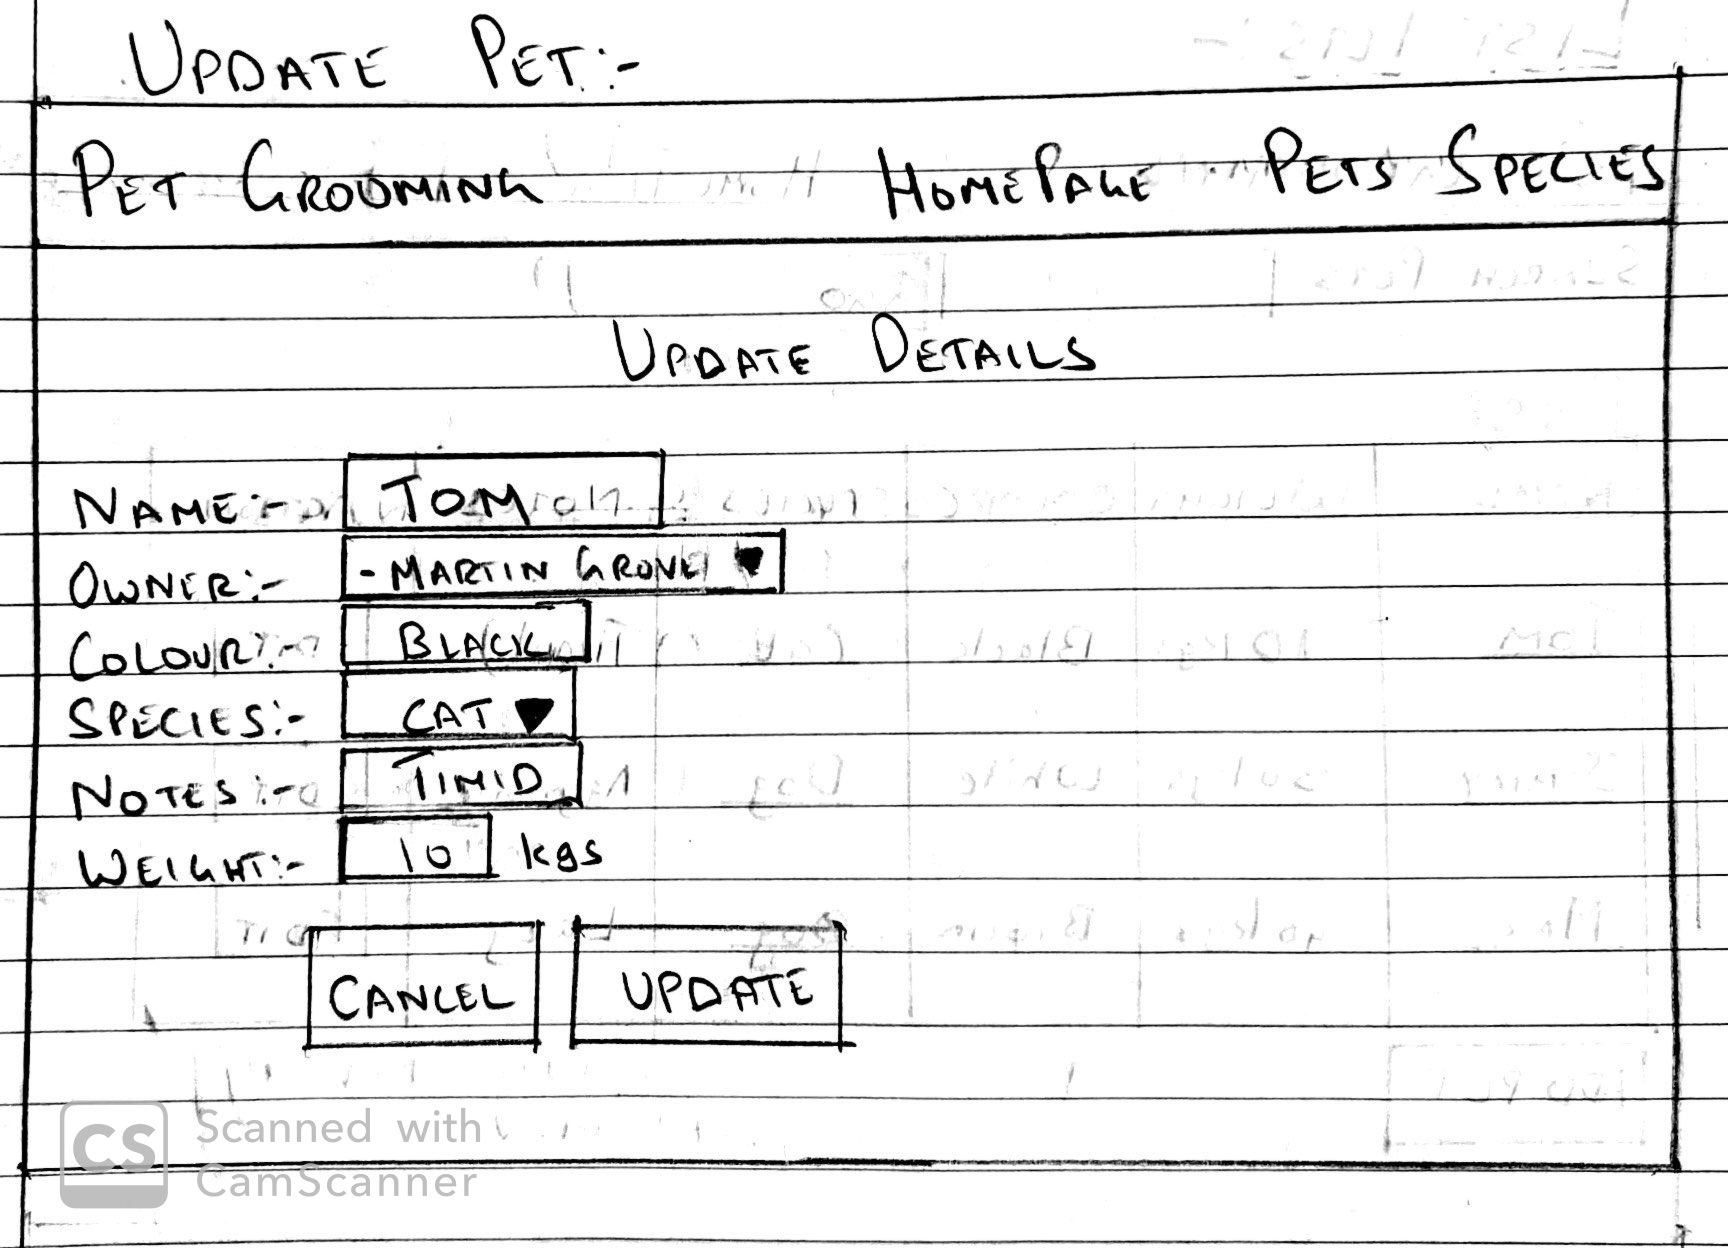 UPDATE PET:-
PET GROOMING HOMEPAGE PETS SPECIES
UPDATE DETAILS
NAME:- TOM
OWNER:- - MARTIN GROVE
COLOUR:- BLACK
SPECIES:- CAT
NOTES:- TIMID
WEIGHT:- 10 kgs
CANCEL UPDATE
CS Scanned with
CamScanner